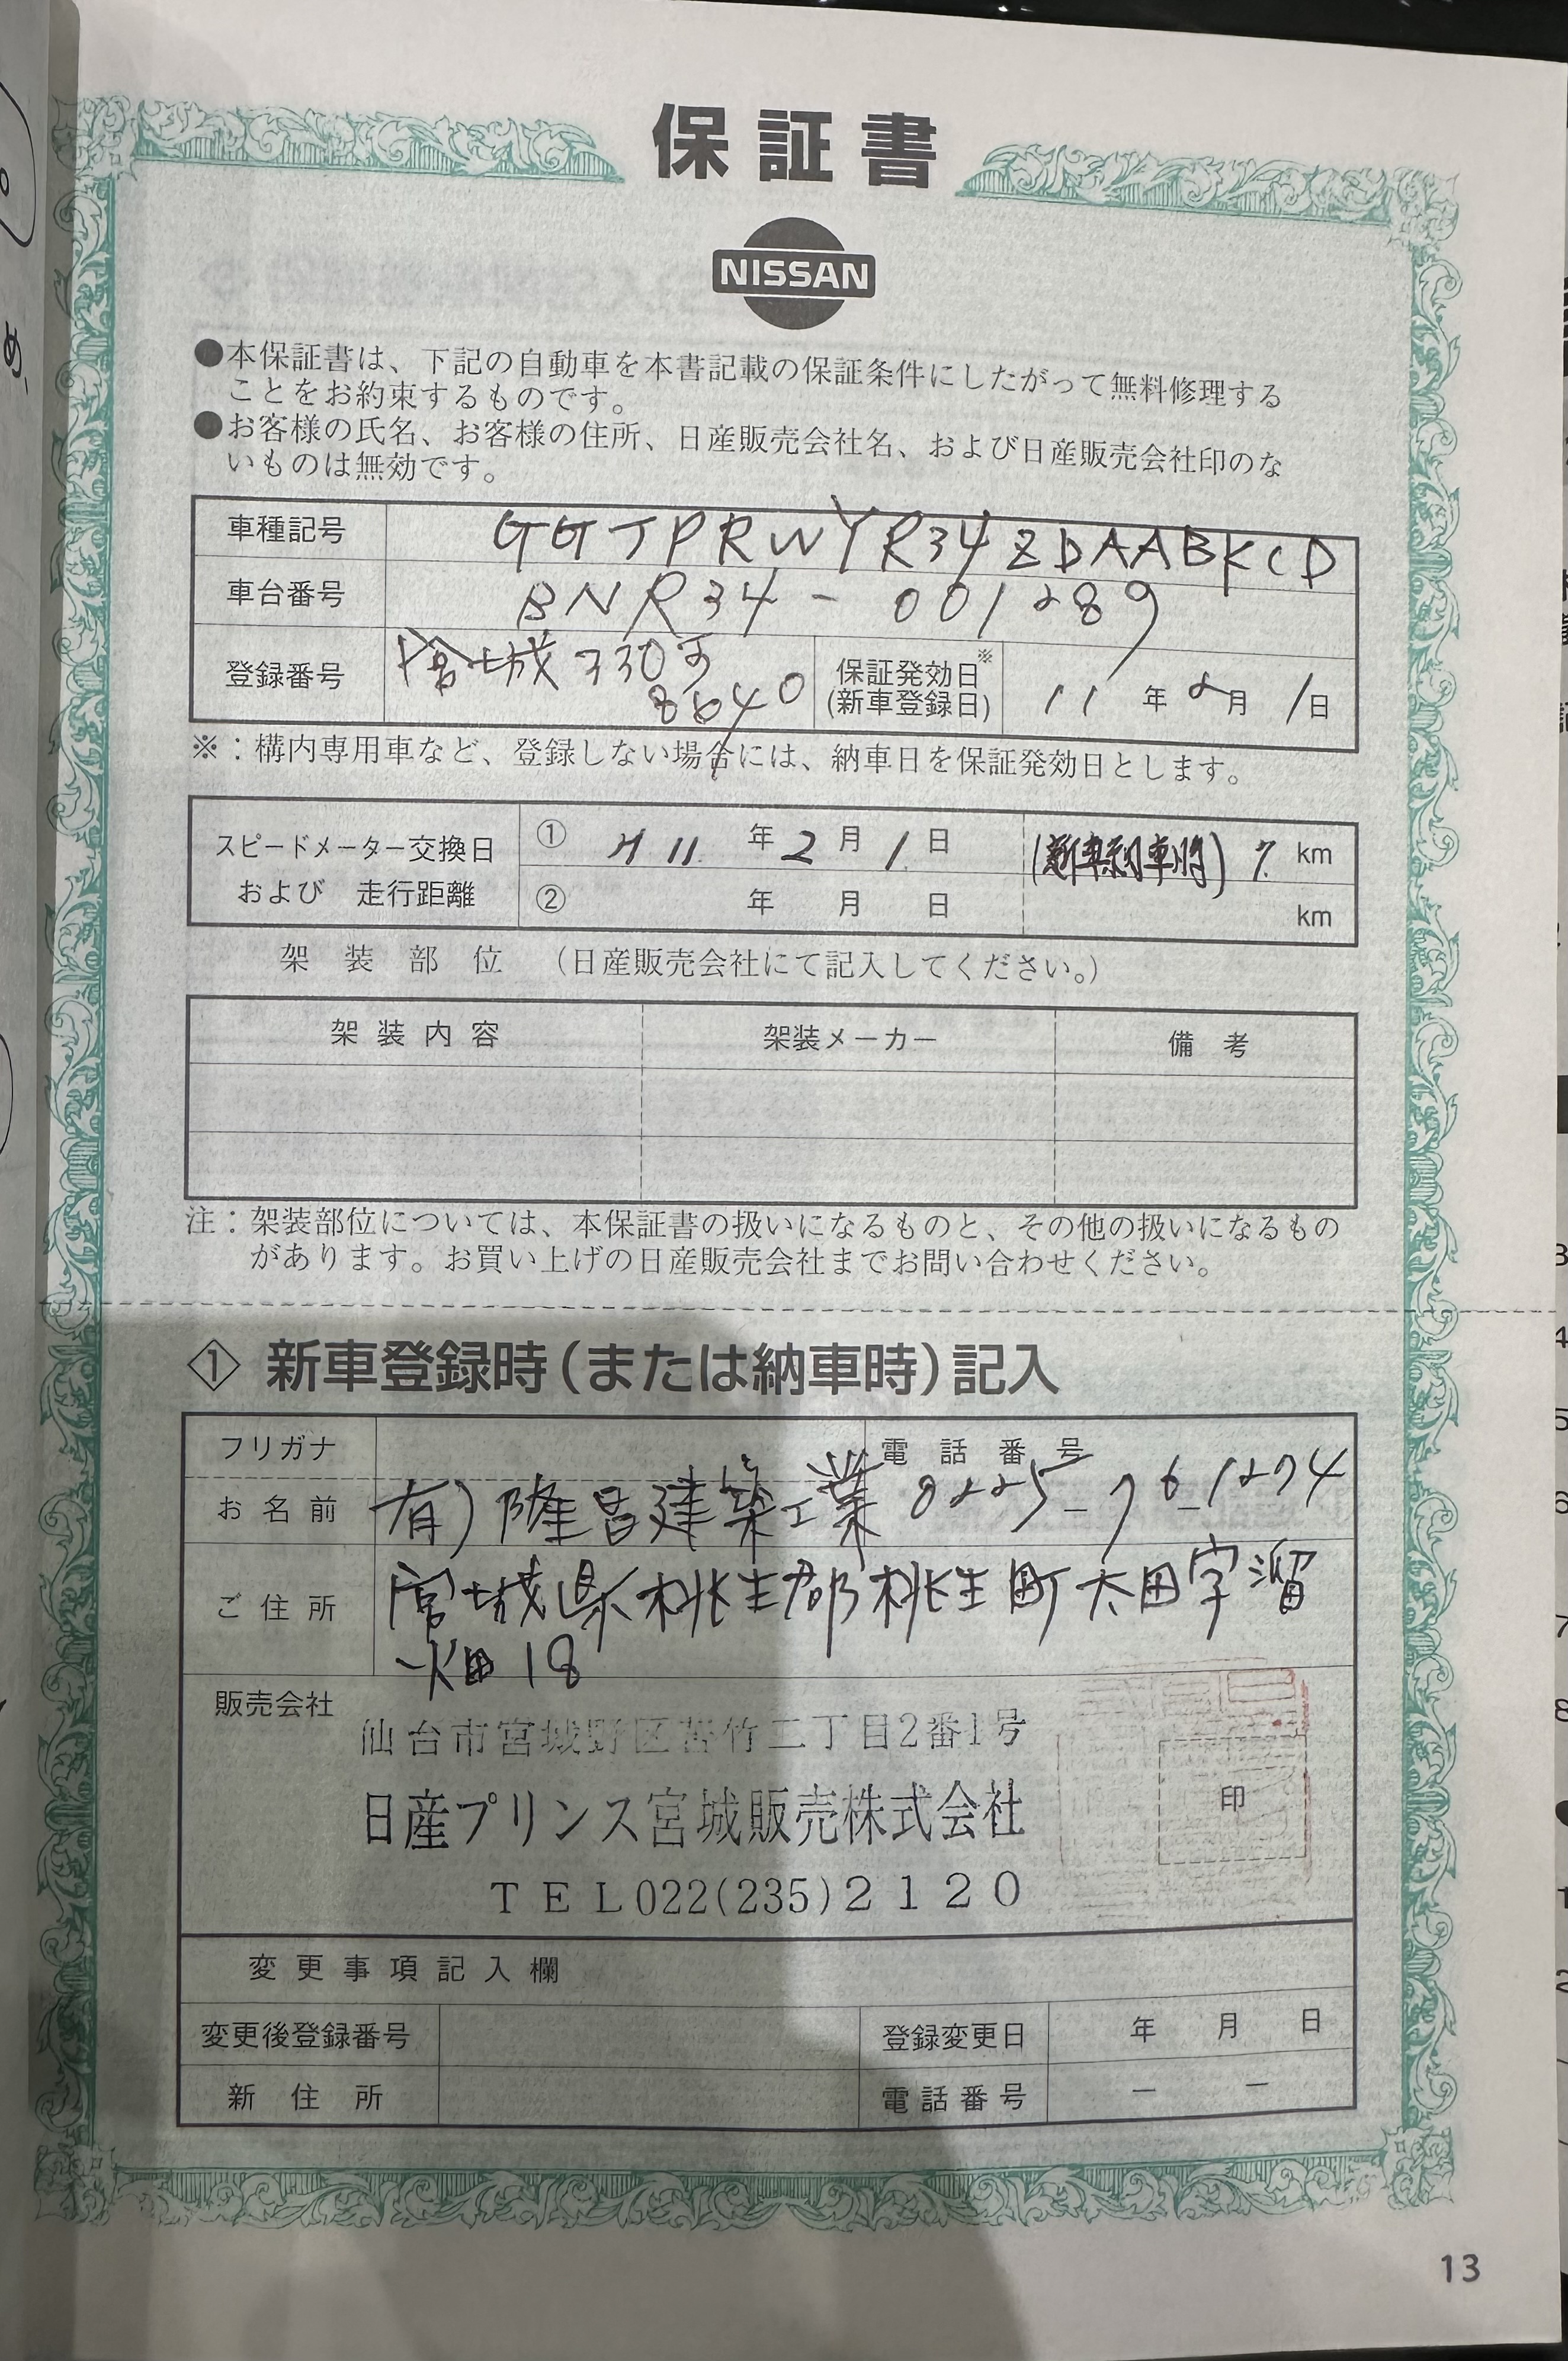 保証書
NISSAN
●本保証書は、下記の自動車を本書記載の保証条件にしたがって無料修理する
ことをお約束するものです。
●お客様の氏名、お客様の住所、日産販売会社名、および日産販売会社印のな
いものは無効です。
車種記号 GGJPRWYR34ZDAABKCD
車台番号 BNR34-001289
登録番号 宮城330 8640
保証発効日※ (新車登録日) 11年2月1日
※：構内専用車など、登録しない場合には、納車日を保証発効日とします。
スピードメーター交換日
および 走行距離
① H11.年2月1.日 (新車納車時) 7. km
② 年 月 日 km
架装部位 (日産販売会社にて記入してください。)
架装内容 架装メーカー 備考
注：架装部位については、本保証書の扱いになるものと、その他の扱いになるもの
があります。お買い上げの日産販売会社までお問い合わせください。
① 新車登録時(または納車時)記入
フリガナ 電話番号
お名前 有)隆昌建築工業 0225-76-1274
ご住所 宮城県桃生郡桃生町太田字溜
畑18
販売会社 仙台市宮城野区苦竹二丁目2番1号
日産プリンス宮城販売株式会社
印
TEL022(235)2120
変更事項記入欄
変更後登録番号 登録変更日 年 月 日
新住所 電話番号 － －
13